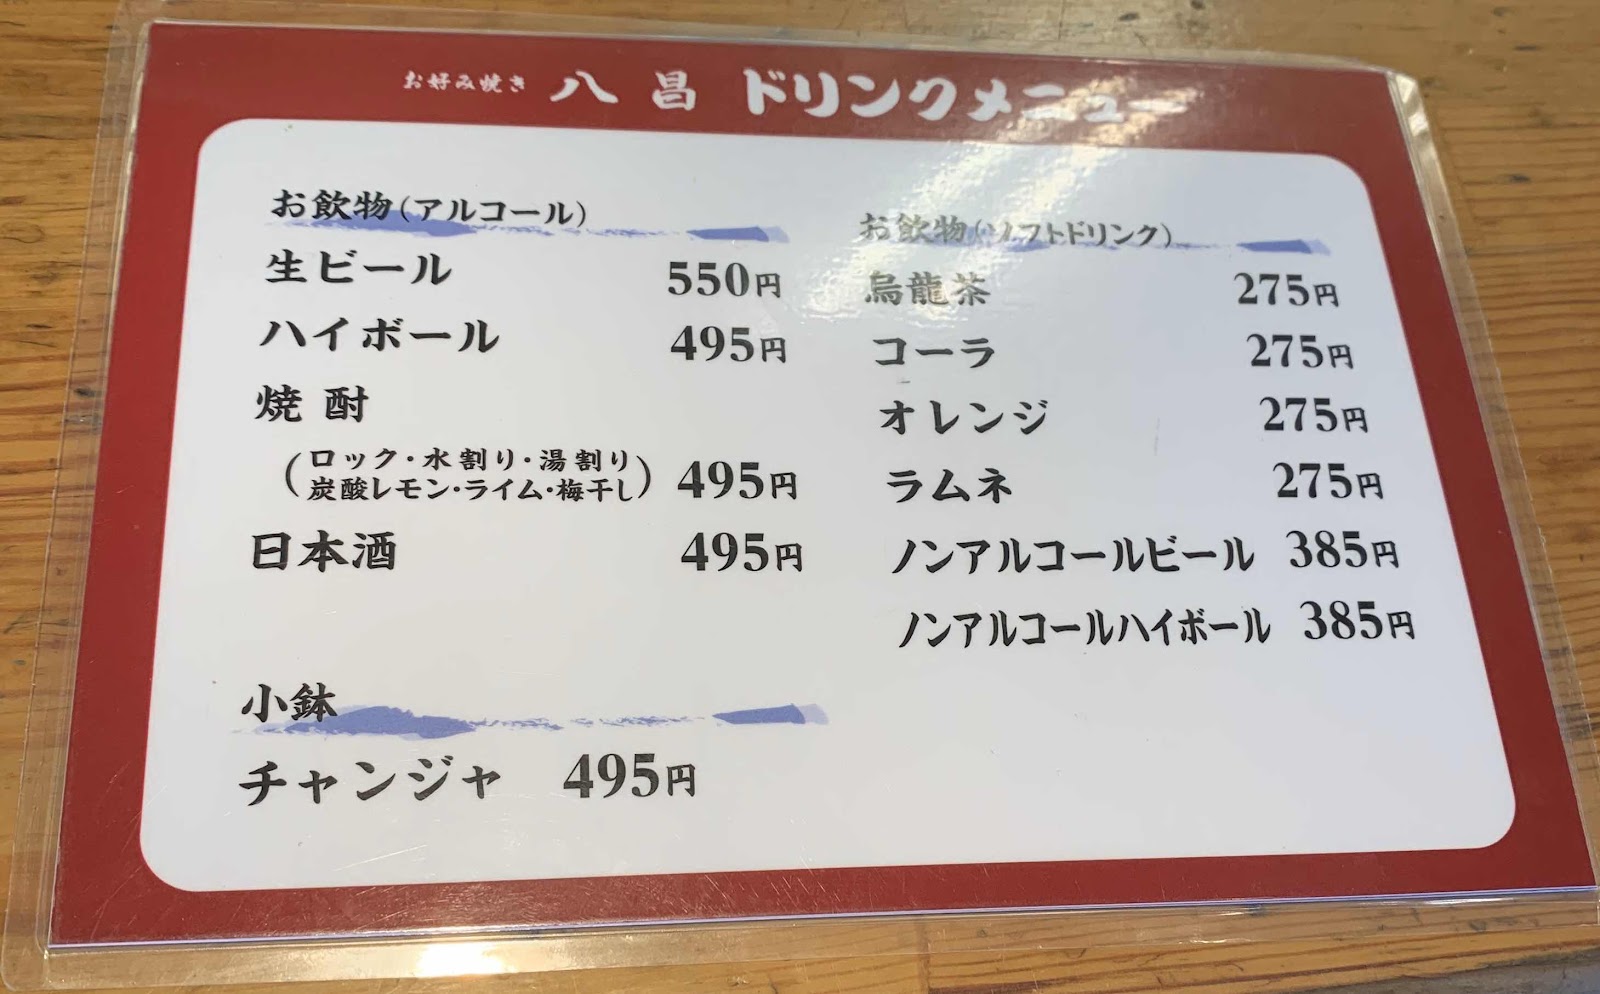 お好み焼き 八昌 ドリンクメニュー
お飲物(アルコール)
生ビール 550円
ハイボール 495円
焼酎
(ロック・水割り・湯割り
炭酸レモン・ライム・梅干し) 495円
日本酒 495円
小鉢
チャンジャ 495円
お飲物(ソフトドリンク)
烏龍茶 275円
コーラ 275円
オレンジ 275円
ラムネ 275円
ノンアルコールビール 385円
ノンアルコールハイボール 385円